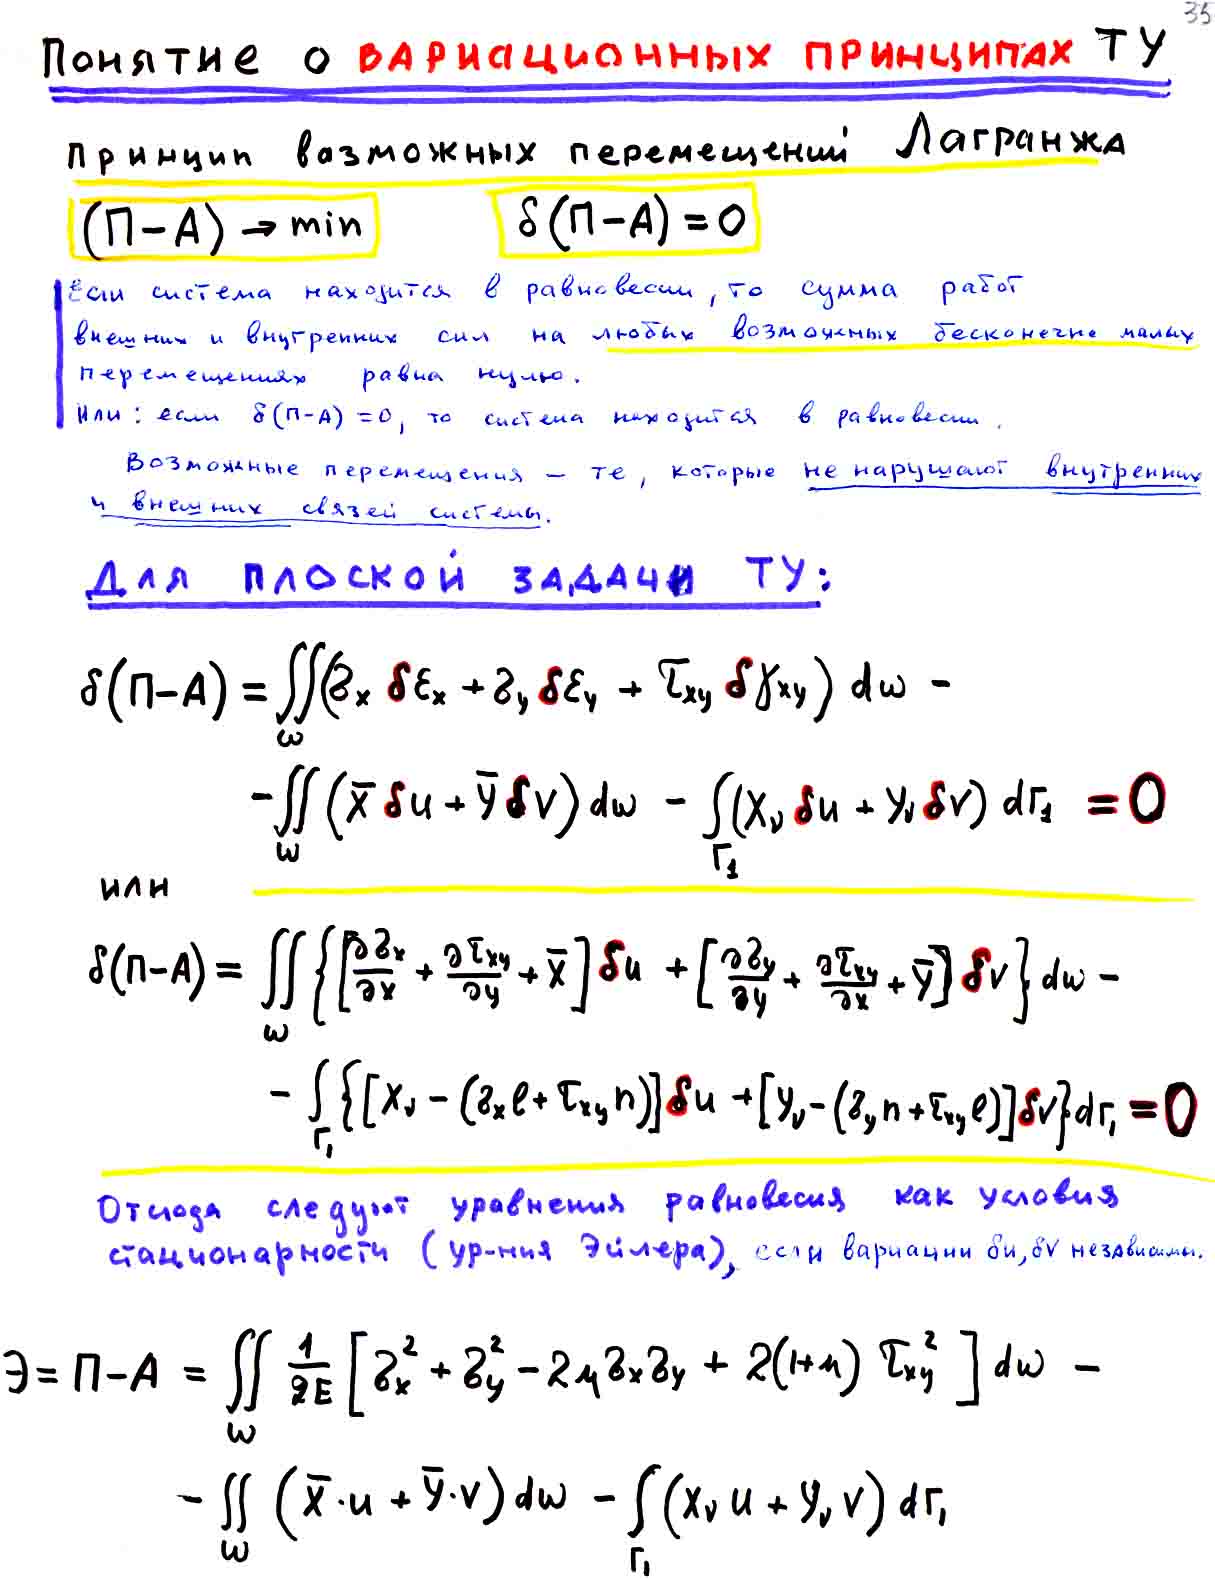 35
Понятие о ВАРИАЦИОННЫХ ПРИНЦИПАХ ТУ
Принцип возможных перемещений Лагранжа
(П−A) → min δ(П−A) = 0
Если система находится в равновесии, то сумма работ
внешних и внутренних сил на любых возможных бесконечно малых
перемещениях равна нулю.
Или: если δ(П−A) = 0, то система находится в равновесии.
Возможные перемещения – те, которые не нарушают внутренних
и внешних связей системы.
Для плоской задачи ТУ:
δ(П−A) = ∬_ω (σ_x δε_x + σ_y δε_y + τ_xy δγ_xy) dω −
− ∬_ω (X̄ δu + Ȳ δv) dω − ∫_Γ₁ (X_ν δu + Y_ν δv) dΓ₁ = 0
или
δ(П−A) = ∬_ω {[∂σ_x/∂x + ∂τ_xy/∂y + X̄] δu + [∂σ_y/∂y + ∂τ_xy/∂x + Ȳ] δv} dω −
− ∫_Γ₁ {[X_ν − (σ_x ℓ + τ_xy n)] δu + [Y_ν − (σ_y n + τ_xy ℓ)] δv} dΓ₁ = 0
Отсюда следуют уравнения равновесия как условия
стационарности (ур-ния Эйлера), если вариации δu, δv независимы.
Э = П−A = ∬_ω 1/2E [σ_x² + σ_y² − 2μσ_xσ_y + 2(1+μ) τ_xy²] dω −
− ∬_ω (X̄·u + Ȳ·v) dω − ∫_Γ₁ (X_ν u + Y_ν v) dΓ₁